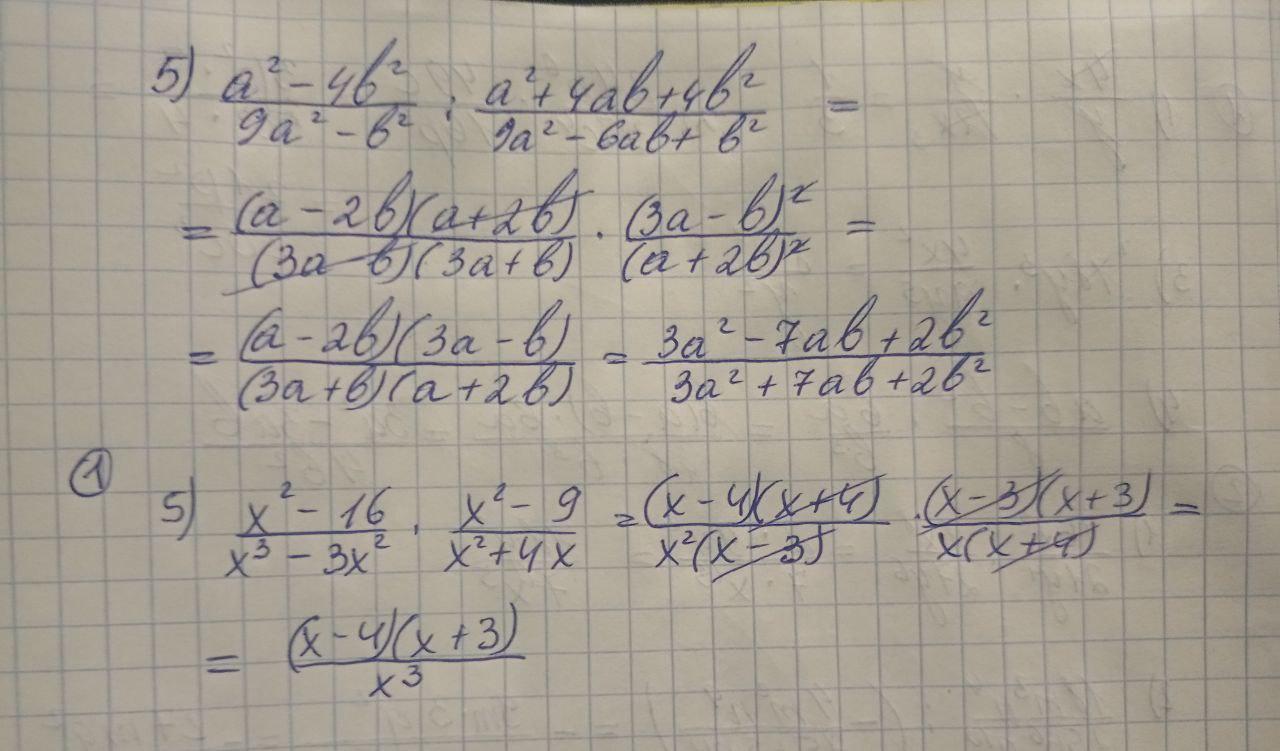 5) (a² - 4b²)/(9a² - b²) : (a² + 4ab + 4b²)/(9a² - 6ab + b²) =
= ((a - 2b)(a + 2b))/((3a - b)(3a + b)) · (3a - b)²/(a + 2b)² =
= ((a - 2b)(3a - b))/((3a + b)(a + 2b)) = (3a² - 7ab + 2b²)/(3a² + 7ab + 2b²)
① 5) (x² - 16)/(x³ - 3x²) · (x² - 9)/(x² + 4x) = ((x - 4)(x + 4))/(x²(x - 3)) · ((x - 3)(x + 3))/(x(x + 4)) =
= ((x - 4)(x + 3))/x³